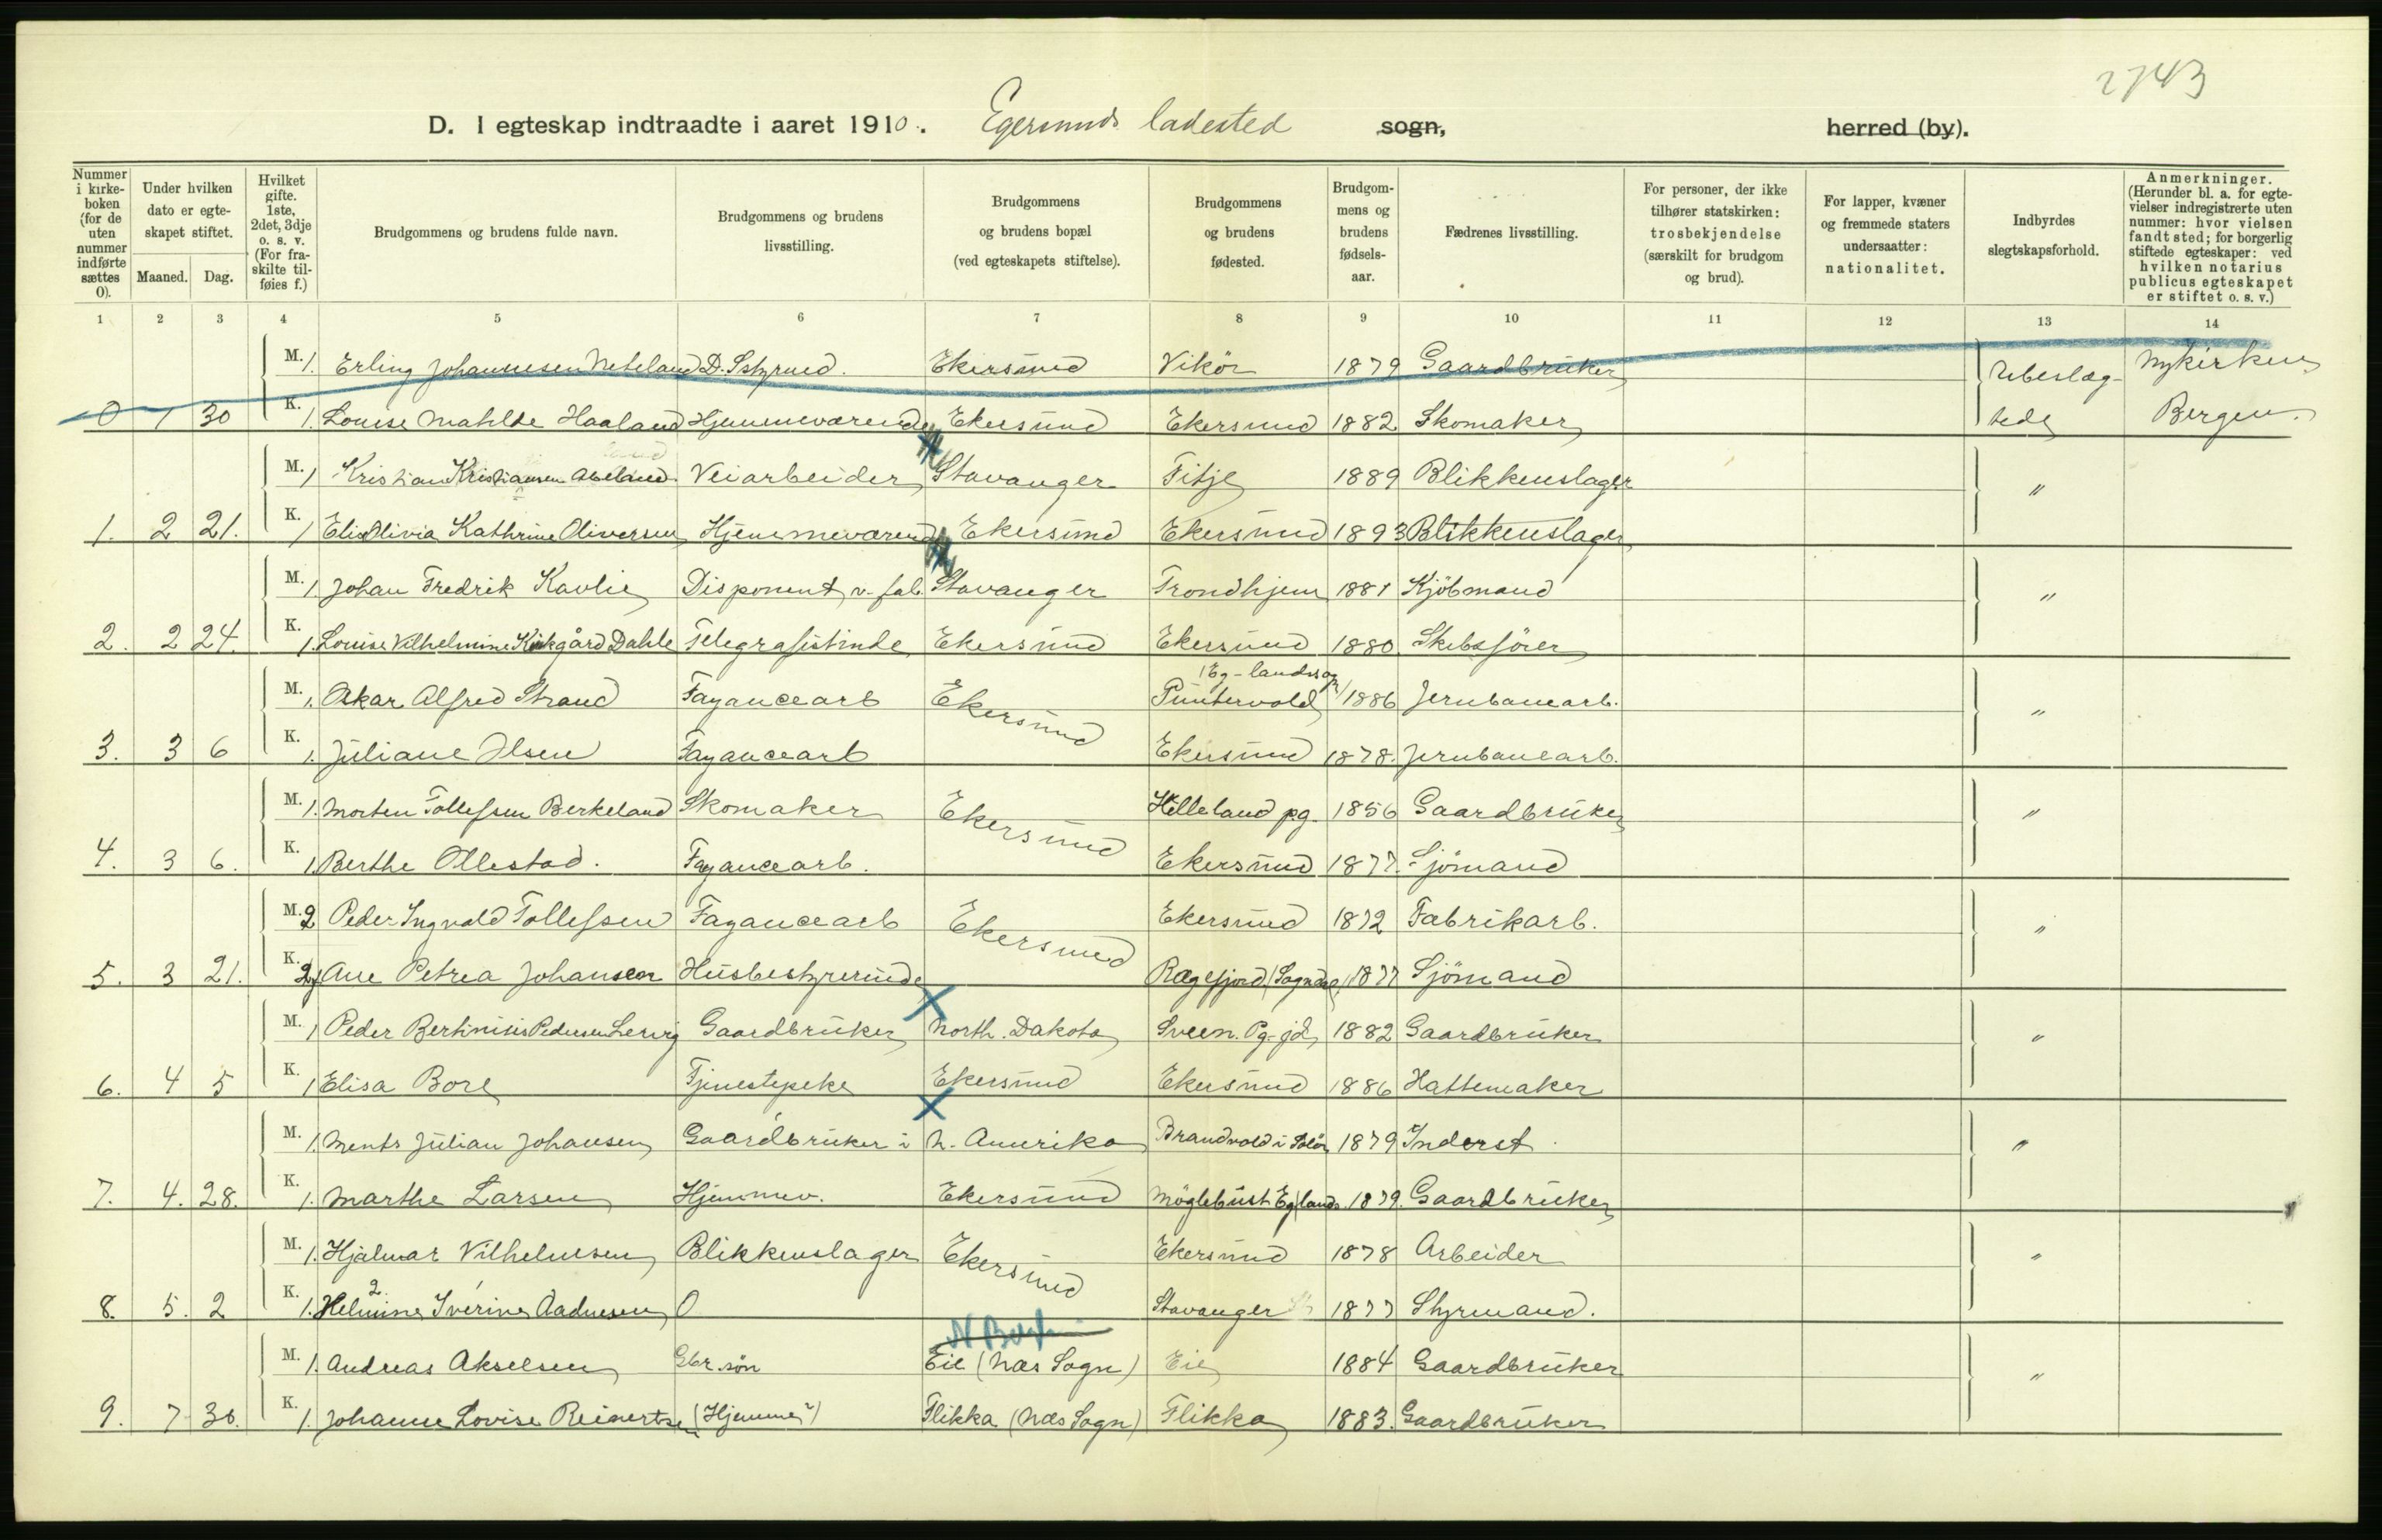 2743
D. I egteskap indtraadte i aaret 1910. Egersunds ladested sogn, herred (by).
Nummer i kirke-boken (for de uten nummer indførte sættes 0).
Under hvilken dato er egte-skapet stiftet.
Maaned. Dag.
Hvilket gifte. 1ste, 2det, 3dje o. s. v. (For fra-skilte til-føies f.)
Brudgommens og brudens fulde navn.
Brudgommens og brudens livsstilling.
Brudgommens og brudens bopæl (ved egteskapets stiftelse).
Brudgommens og brudens fødested.
Brudgom-mens og brudens fødsels-aar.
Fædrenes livsstilling.
For personer, der ikke tilhører statskirken: trosbekjendelse (særskilt for brudgom og brud).
For lapper, kvæner og fremmede staters undersaatter: nationalitet.
Indbyrdes slegtskapsforhold.
Anmerkninger. (Herunder bl. a. for egte-vielser indregistrerte uten nummer: hvor vielsen fandt sted; for borgerlig stiftede egteskaper: ved hvilken notarius publicus egteskapet er stiftet o. s. v.)
1 2 3 4 5 6 7 8 9 10 11 12 13 14
M. 1. Erling Johannesen Neteland D. Sstyrmd. Ekersund Vikör 1879 Gaardbruker Ubeslæg- Nykirken
0 1 30 K. 1. Louise Mathilde Haaland Hjemmeværende Ekersund Ekersund 1882 Skomaker tede Bergen.
M. 1 Kristian Kristiansen Abeland Veiarbeider Stavanger Fitje 1889 Blikkenslager "
1. 2 21. K. 1 Elis Olivia Kathrine Oliversen Hjemmeværende Ekersund Ekersund 1893 Blikkenslager
M. 1. Johan Fredrik Kavlie Disponent v. fab. Stavanger Trondhjem 1881 Kjöbmand "
2. 2 24. K. 1. Louise Vilhelmine Kirkgård Dahle Telegrafistinde Ekersund Ekersund 1880. Skibsförer
M. 1. Oskar Alfred Strand Fayancearb Ekersund Puntervold (Eg-landssogn) 1886 Jernbanearb. "
3. 3 6 K. 1. Juliane Olsen Fayancearb Ekersund 1878. Jernbanearb.
M. 1. Morten Tollefsen Berkeland Skomaker Ekersund Helleland pg. 1856 Gaardbruker "
4. 3 6. K. 1. Berthe Ollestad. Fayancearb. Ekersund 1877. Sjömand
M. 2 Peder Ingvald Tollefsen Fayancearb Ekersund Ekersund 1872 Fabrikarb. "
5. 3 21. K. 2 Ane Petrea Johansen Husbestyrerinde Rægefjord (Sogndal) 1877 Sjömand
M. 1 Peder Bertinius Pedersen Lervig Gaardbruker North. Dakota Sveen. Pg. 1882 Gaardbruker "
6. 4 5 K. 1 Elisa Bore Tjenestepike Ekersund Ekersund 1886 Hattemaker
M. 1. Ments Julian Johansen Gaardbruker i N. Amerika Brandvold i Solör 1879 Inderst. "
7. 4. 28. K. 1. Marthe Larsen Hjemmev. Ekersund Möglebust Eg. lands. 1879. Gaardbruker
M. 1. Hjalmar Vilhelmsen Blikkenslager Ekersund Ekersund 1878 Arbeider "
8. 5. 2 K. 1. Helmine Iverine Aadnesen 0 Stavanger 1877 Styrmand.
M. 1. Andreas Akselsen Gbr. sön Eie (Næs Sogn) Eie 1884 Gaardbruker "
9. 7 30. K. 1. Johanne Lovise Reinertsen (Hjemme") Flikka (Næs Sogn) Flikka 1883. Gaardbruker